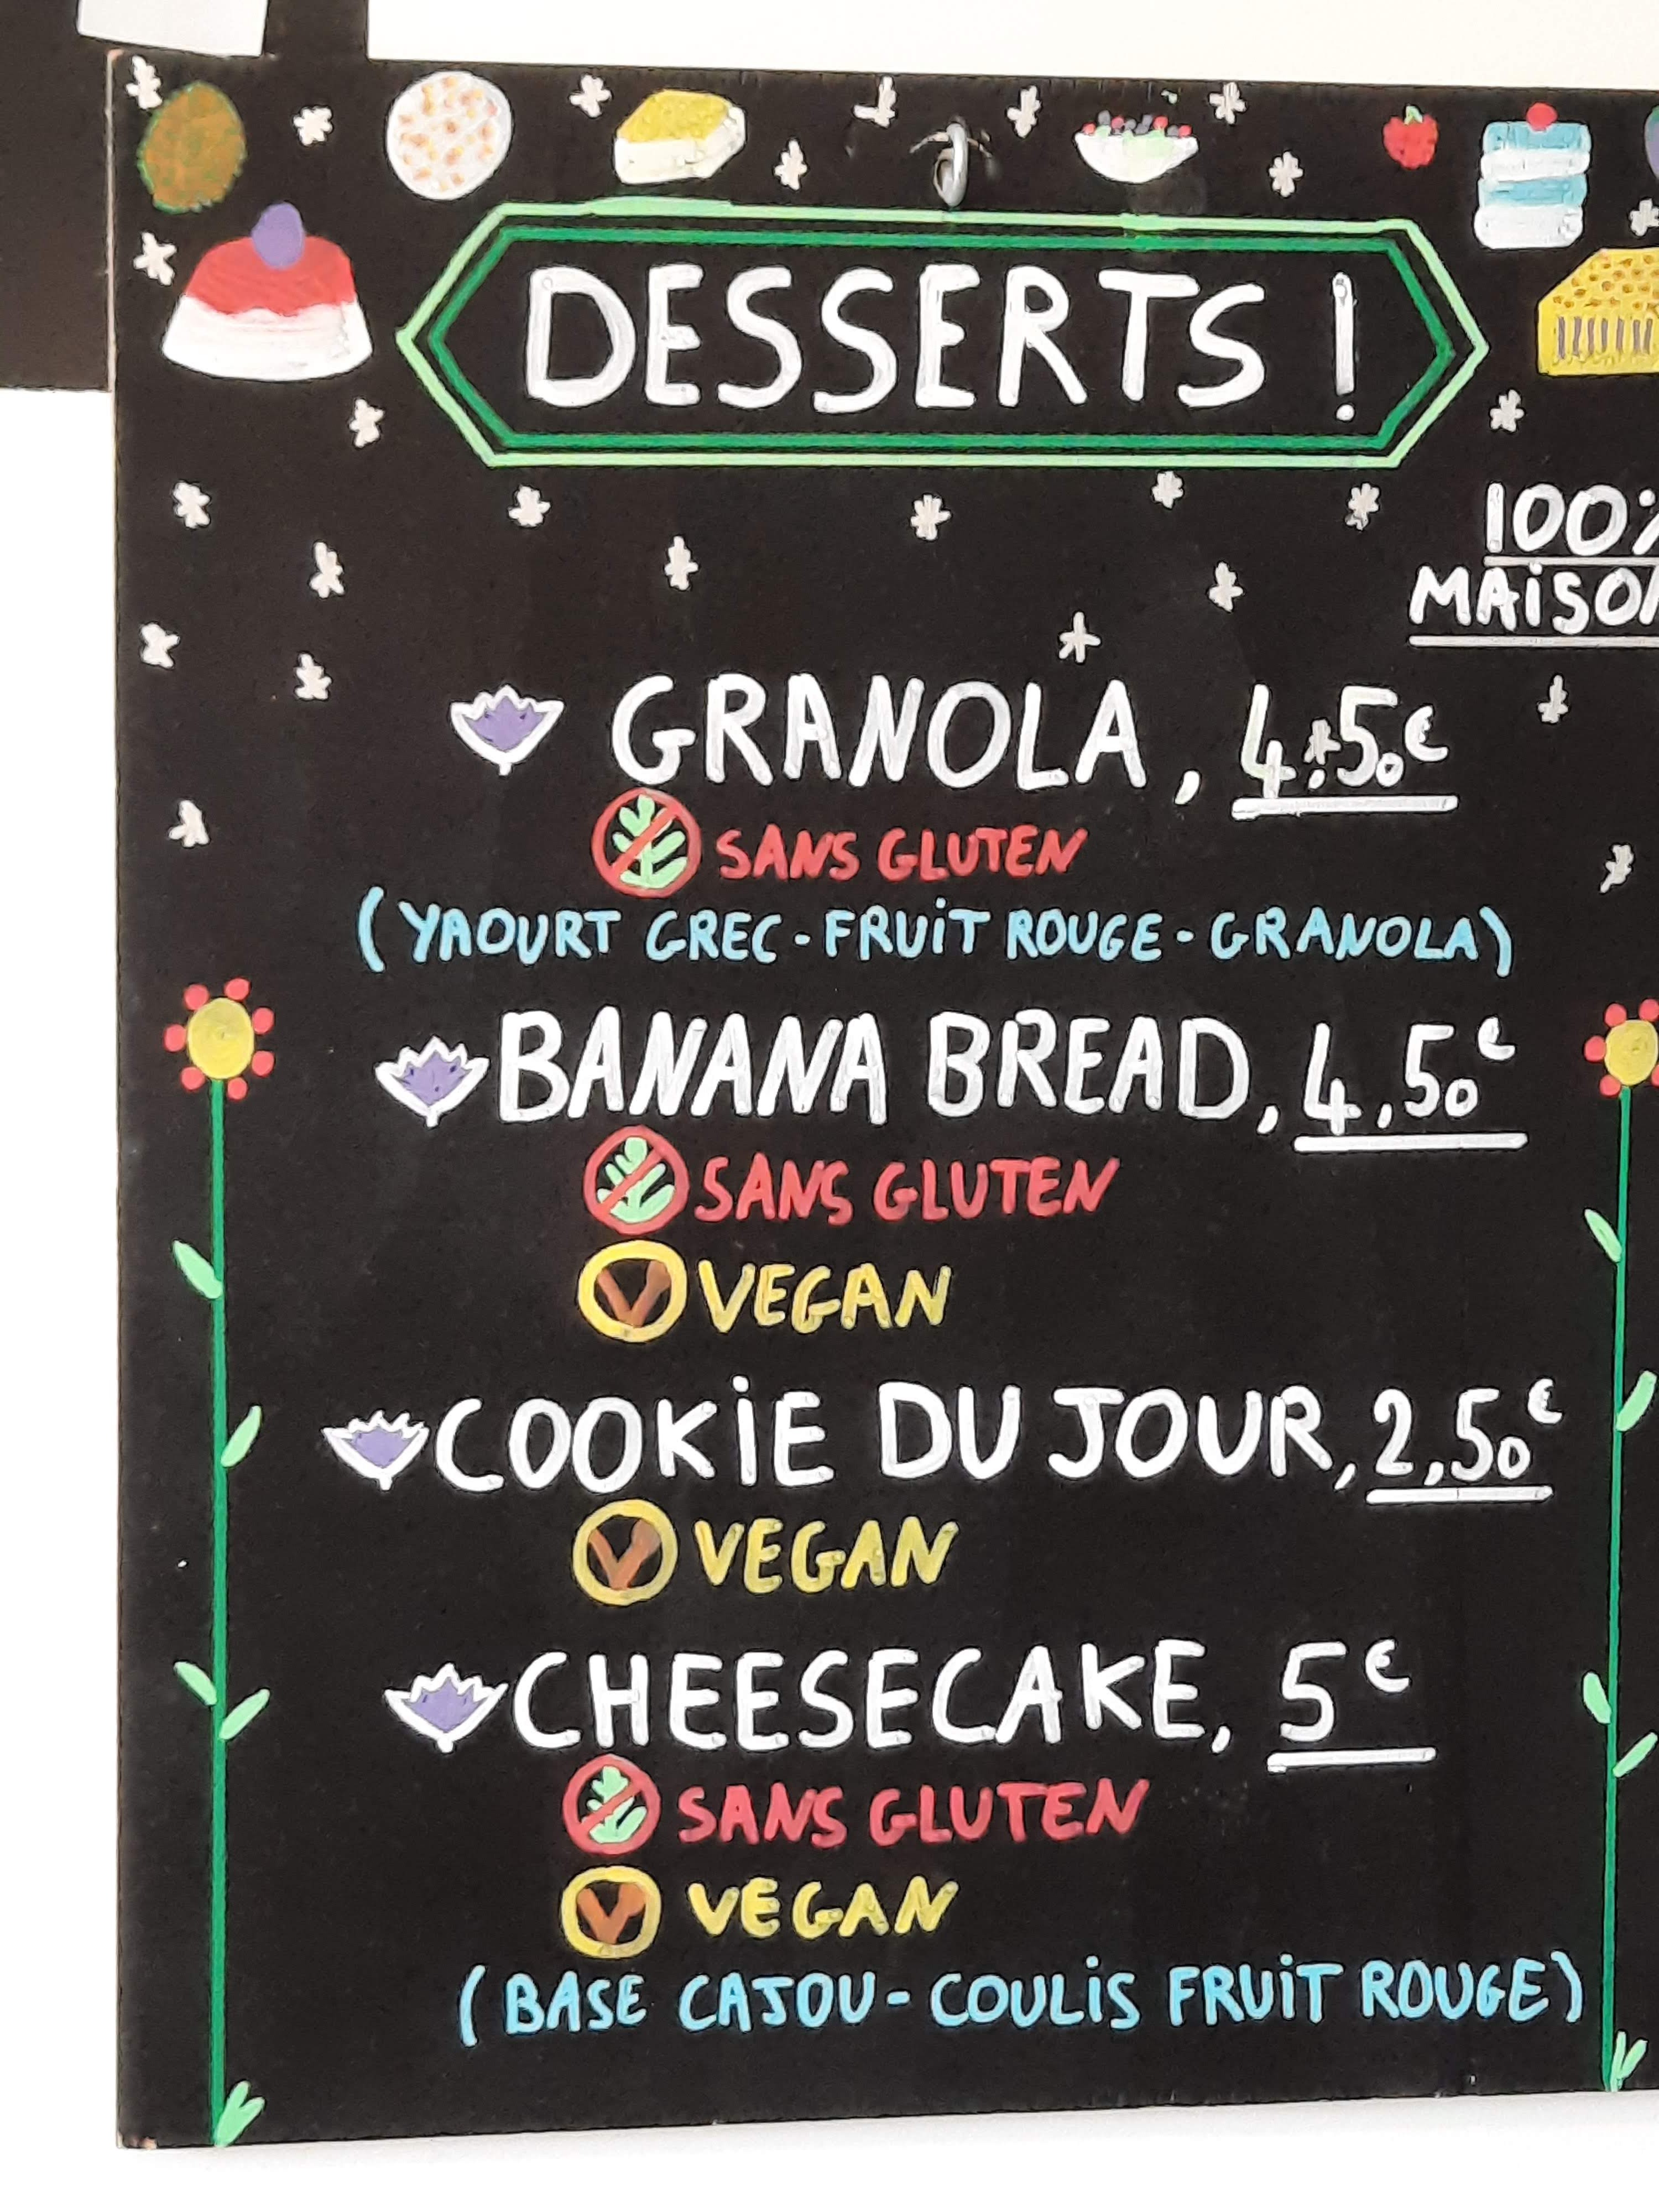 DESSERTS !
100%
MAISON
GRANOLA, 4,50€
SANS GLUTEN
(YAOURT GREC-FRUIT ROUGE-GRANOLA)
BANANA BREAD, 4,50€
SANS GLUTEN
V VEGAN
COOKIE DU JOUR, 2,50€
V VEGAN
CHEESECAKE, 5€
SANS GLUTEN
V VEGAN
(BASE CAJOU-COULIS FRUIT ROUGE)